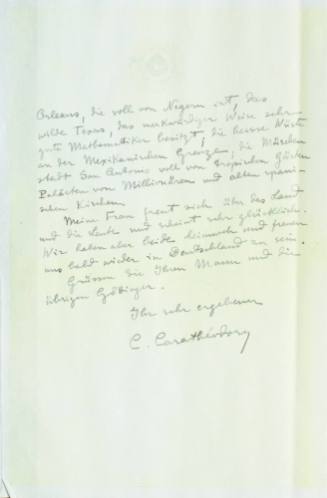 Orleans, die voll von Negern ist, das
wilde Texas, das merkwürdiger Weise sehr
gute Mathematiker besitzt, die heisse Wüste
an der Mexikanischen Grenze, die Märchen
stadt San Antonio voll von tropischen Gärten
Palästen von Millionären und alten spani-
schen Kirchen.
Meine Frau freut sich über das Land
und die Leute und scheint sehr glücklich.
Wir haben aber beide Heimweh und freuen
uns bald wieder in Deutschland zu sein.
Grüssen Sie Ihren Mann und die
übrigen Göttinger.
Ihr sehr ergebener
C. Carathéodory